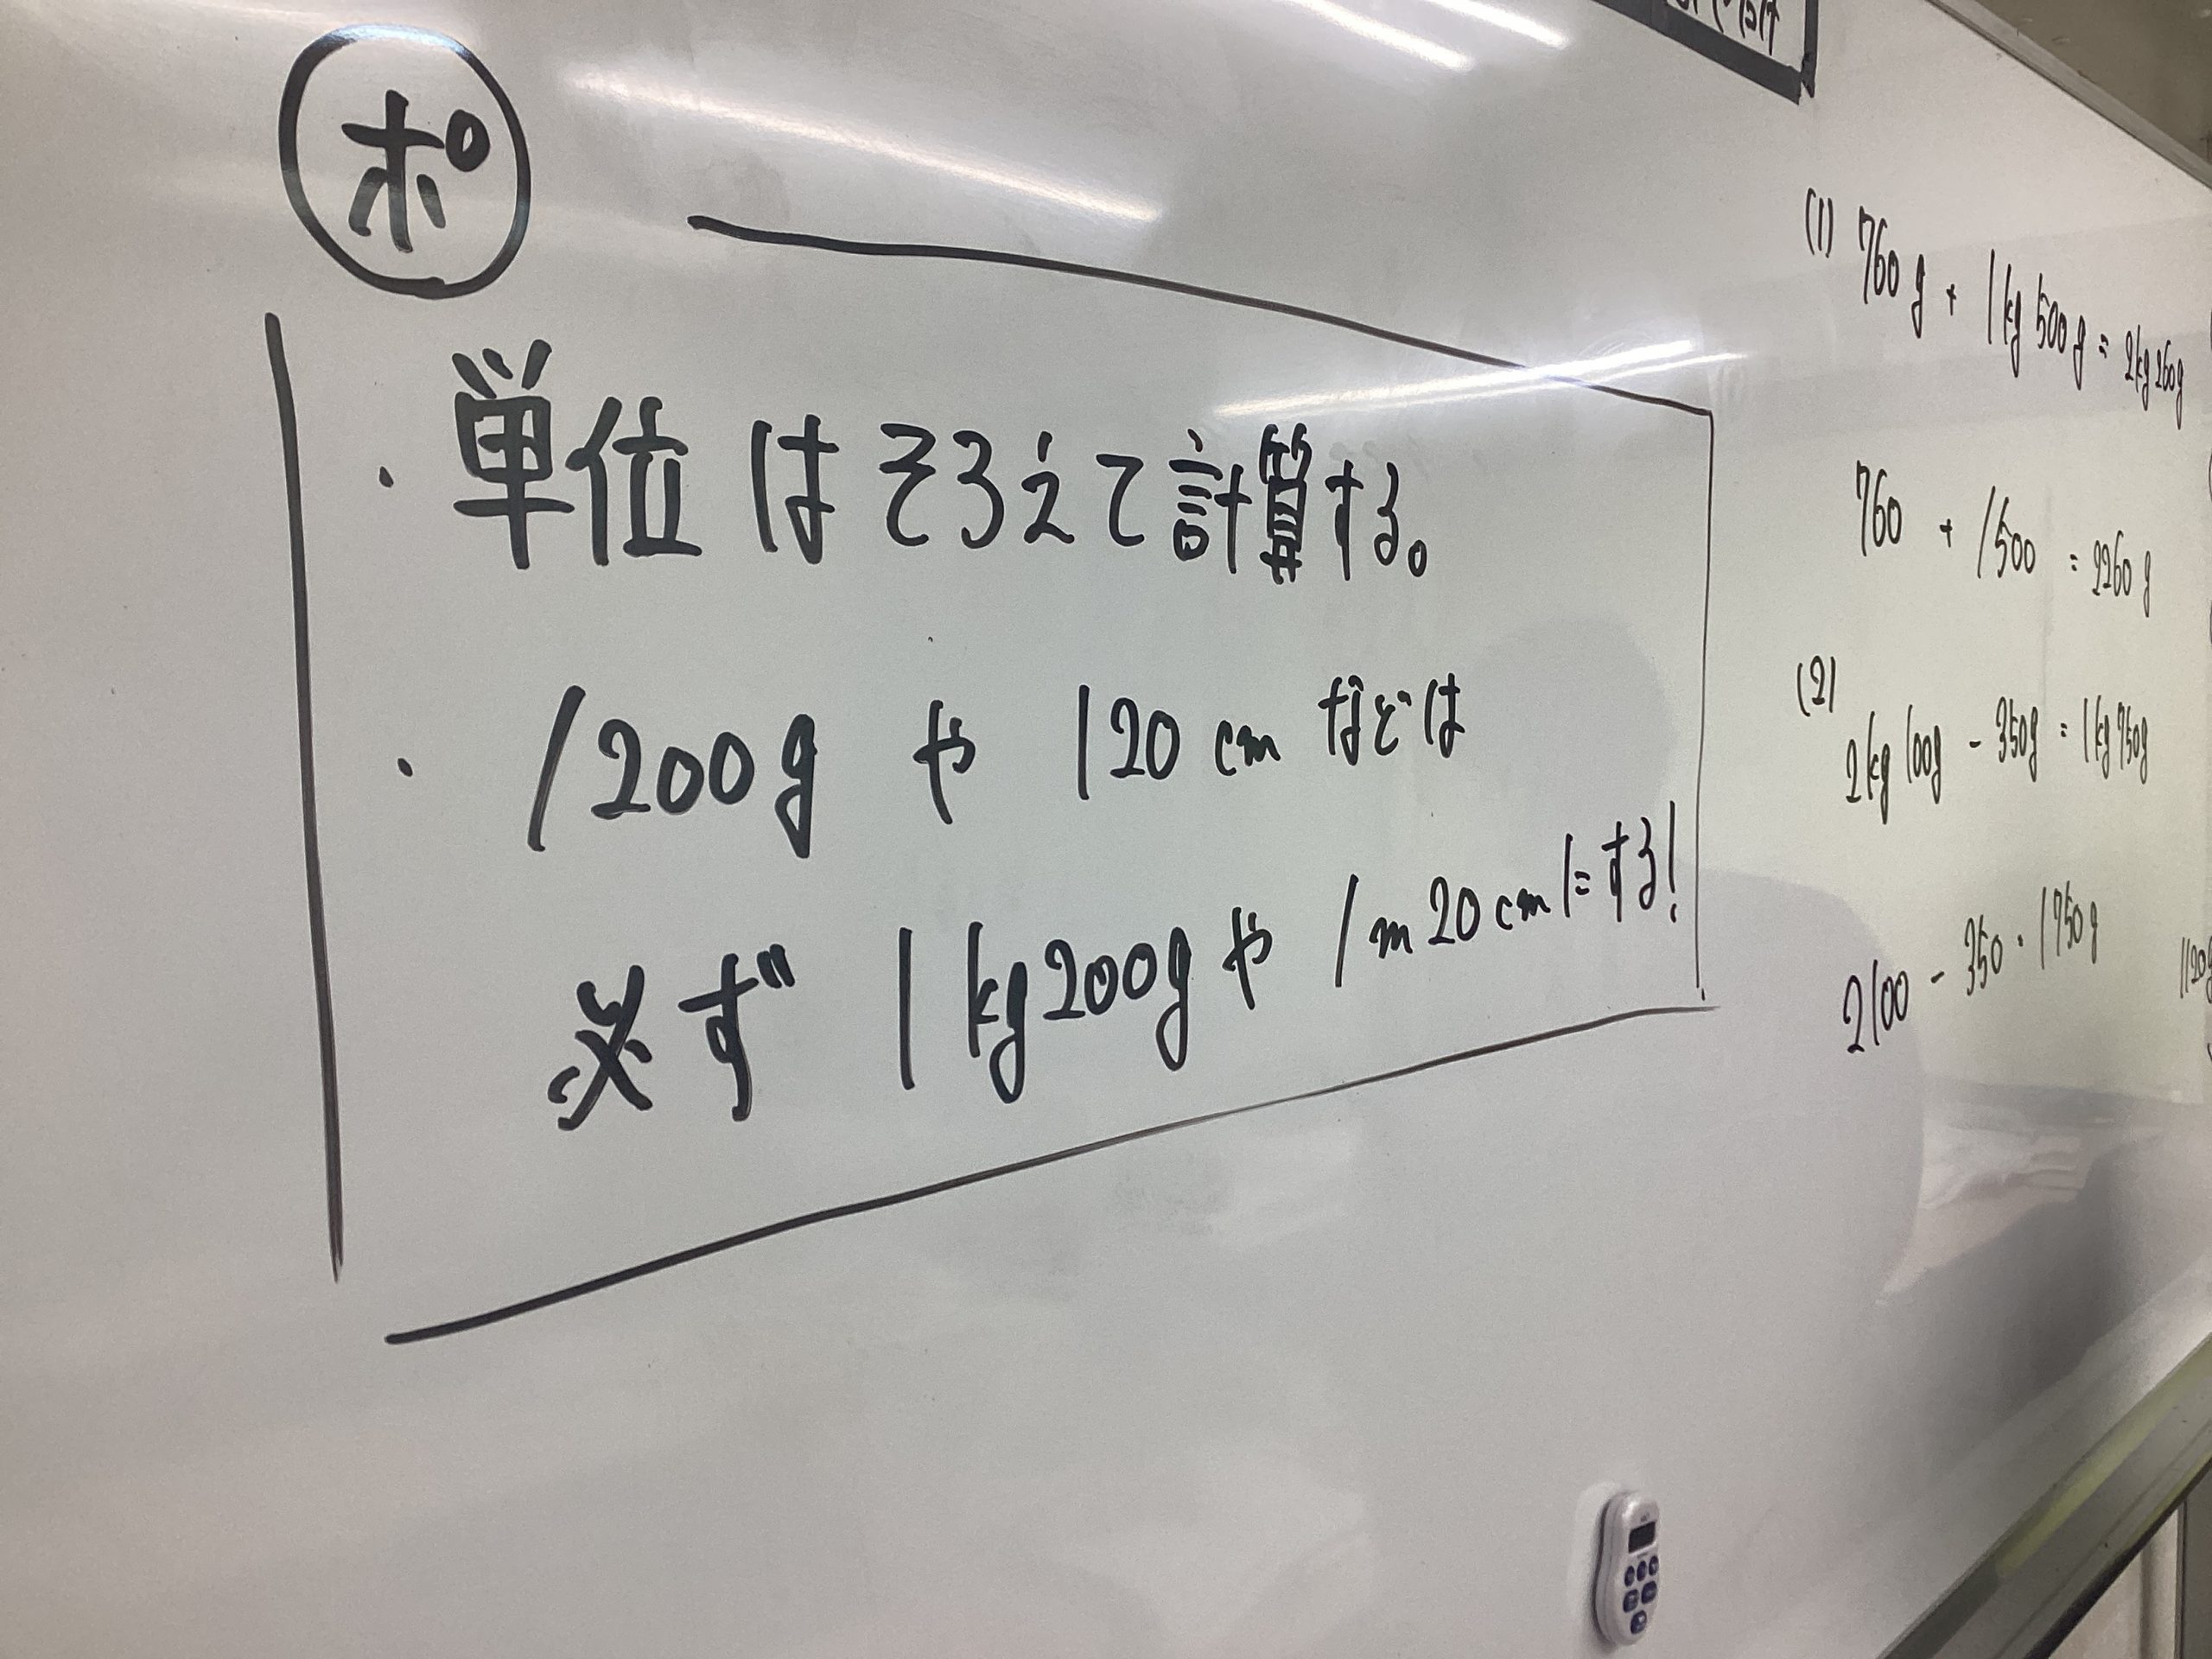 ポ
・単位はそろえて計算する。
・1200g や 120cm などは
必ず 1kg200gや1m20cmにする!
(1) 760g + 1kg500g = 2kg260g
760 + 1500 = 2260g
(2)
2kg100g - 350g = 1kg750g
2100 - 350 = 1750g